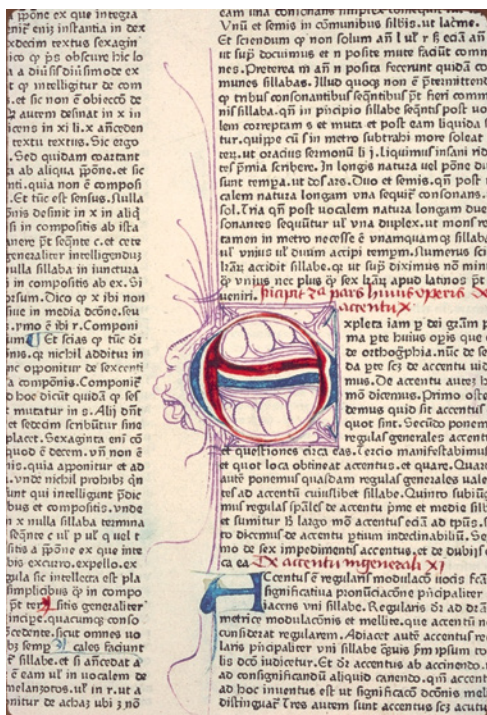 ꝓpōne ex que integra
nit̄ eni instantia in dex
xdecim textus sexagin
ico ꝙ p̄s obscure hic lo
a a diūsis diūsimode ex
ct ꝙ intelligitur de com
s. et sic non ē obiecco de
autem desinat in x in
icens in xi li. x an̄ceden
textu textus. Sic ergo
. Sed quidam coartant
a ab aliqua ꝓpōne. et sic
nti. quia non ē composi
. Et tūc est sensus. Nulla
onis definit in x in aliq̄
si in compositis ab ista
anere pt seq̄nte c. et cete
generaliter intelligendum
nulla sillaba in iunctura
in compositis ab ex. Si
orsum. Dico ꝙ x ibi non
ue in media dcōne. seu
.rmo ē ibi r. Componi
Et scias ꝙ tūc
nis. qr nichil additur in
nc opponitur de sexcenti
a compōnis. Componit̄
o hoc dicūt quidā ꝙ ses
t mutatur in s. Alij dn̄t
et sedecim scribūtur sine
placet. Sexaginta eni cō
quod ē decem. vn̄ non ē
nis. quia apponitur et ad
. vnde nichil prohibet
unt qui intelligunt p̄dic
bus et compositis. vnde
n x nulla sillaba termina
seq̄nte c ul p ul q uel t
sitis a ꝓpōne ex que inte
bis excurro. expello. ex
gula sic intellecta est pla
simplicibus ꝙ in compo
sitis generaliter
incipe. quacumqꝫ conso
cedente. sicut omnes uo
bꝫ semp cales faciunt
ē sillabe. et si an̄cedat a
ē eam ul in uocalem de
melanzotos. ul in r. ut a
nitur de achaz ubi z nō
eam una consonans simplex consequit̄
Vnū et semis in cōmunibus silbis. ut latme.
Et sciendum ꝙ non solum an̄ l ul r sꝫ eciā an̄
ut sup̄ docuimus et n posite mute faciūt comm
nes. Preterea m an̄ n posita fecerunt quidā com
munes sillabas. Illud quoqꝫ non ē p̄termittendum
ꝙ tribus consonantibus seq̄ntibus p̄t fieri comm
nis sillaba. qn̄ in p̄ncipio sillabe seq̄ntis post uo
lem correptam s et muta et post eam liquida
tur. quipe cū s in metro subtrahi more soleat
ter. ut oracius sermonū li j. liquimus insani rid
tes p̄mia scribere. In longis natura uel pōne duo
sunt tempa. ut dos ars. Duo et semis. qn̄ post
calem natura longam vna sequit̄ consonans.
sol. Tria qn̄ post uocalem natura longam due
sonantes sequūtur ul vna duplex. ut mons rex
tamen in metro necesse ē vnamquamqꝫ sillabam
ul vnius ul duūm accipi tempm. Numerus
accidit sillabe. qr ut sup̄ diximus nō minus
ꝙ vnius nec plus ꝙ sex apud latinos p̄t
ueniri. Incipit pars huius operis de
accentu X
Expleta iam p̄ dei grām p
ma p̄te huius opis que
de orthogphia. nūc de se
da p̄te scꝫ de accentu uid
mus. De accentu autem
mō dicemus. Primo oste
demus quid sit accentus
quot sint. Secūdo ponem
regulas generales accent
et questiones circa eas. Tercio manifestabimus
et quot loca obtineat accentus. et quare. Quar
autē ponemus quasdam regulas generales uale
tes ad accentū cuiuslibet sillabe. Quinto subiung
mus regulas sp̄ales de accentu p̄me et medie silb
et sumitur largo mō accentus eciā ad tp̄us.
to dicemus de accentu ptium indeclinabiliū. Se
mo de sex impedimentis accentus. et de dubijs
ca ea De accentu ingenerali XI
Accentus ē regularis modulacō uocis
significatiua pronūciacōne p̄ncipaliter
iacens vni sillabe. Regularis dr̄ ad
metrice modulacōnis et mellite. que accentū n
considerat regularem. Adiacet autē accentus re
laris p̄ncipaliter vni sillabe
lis dcō iudicetur. Et dr̄ accentus ab accinendo.
ad consignificandū aliquid canendo. qm̄ accent
ad hoc inuentus est ut significacō dcōnis mel
distinguat̄ Tres autem sunt accentus scꝫ acutus